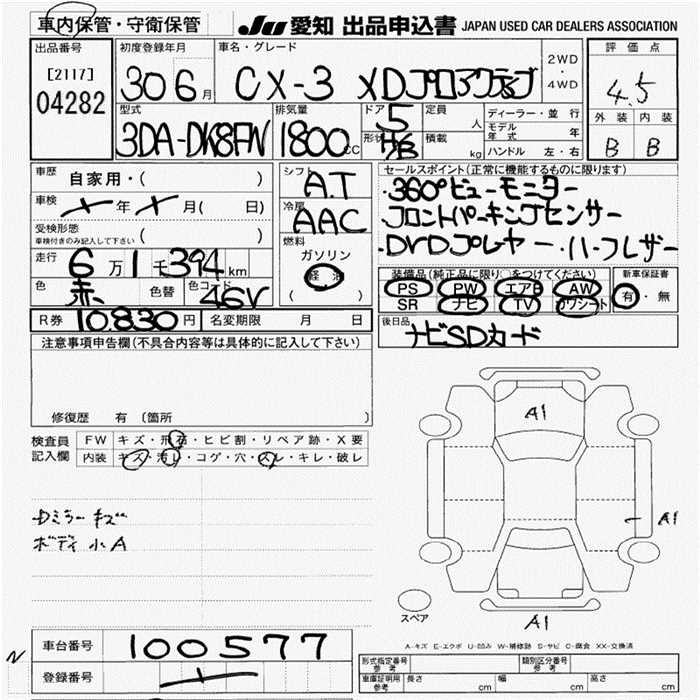 車内保管・守衛保管 JU 愛知 出品申込書 JAPAN USED CAR DEALERS ASSOCIATION
出品番号 初度登録年月 車名・グレード 2WD・4WD 評価点
[2117] 04282 30 6月 CX-3 XDプロアクティブ 4.5
型式 排気量 ドア 定員 ディーラー・並行 外装 内装
3DA-DK8FW 1800cc 5 人 モデル年式 年 B B
形状 H/B 積載 kg ハンドル 左・右
車歴 自家用・( ) シフト A.T セールスポイント(正常に機能するものに限ります)
車検 年 月( 日) 冷房 AAC ・360°ビューモニター
受検形態 車検付きのみ記入して下さい ( ) 燃料 ・フロントパーキングセンサー
走行 6万1千394km ガソリン ・DVDプレヤー ・ハーフレザー
色 赤 色替 色コード 46V 軽油 ( )
装備品(純正品に限り○をつけてください) 新車保証書
PS PW エアB AW 有・無
SR ナビ TV カワシート
R券 10.830円 名変期限 月 日 後日品 ナビSDカード
注意事項申告欄(不具合内容等は具体的に記入して下さい)
修復歴 有 〔箇所
検査員記入欄 FW キズ・形・ヒビ割・リペア跡・X要
内装 キズ・汚レ・コゲ・穴・スレ・キレ・破レ
A1
Dミラーキズ
ボディ小A
A1
スペア
A1
A-キズ E-エクボ U-凹み W-補修跡 S-サビ C-腐食 XX-交換済
N 車台番号 100577
登録番号
形式指定番号 参考 類別区分番号 参考
車庫証明用 参考 長さ cm 幅 cm 高さ cm